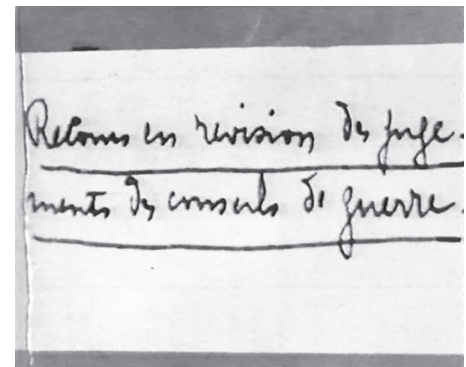 Recours en révision des juge-
ments des conseils de guerre.